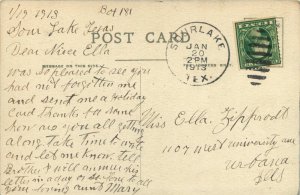 1/19 1913 Box 181
Sour Lake, Texas
POST CARD
Dear Niece Ella
was so pleased to see you
had not forgotten me
and sent me a Holiday
Card thanks for same
how are you all getting
along take time to write
and let me know tell
Brother I will answer his
letter in a day or so love to all
your loving aunt Mary
SOUR LAKE
JAN
20
2 PM
1913
TEX.
Miss Ella Zipprodt
1107 West University ave
Urbana
Ills